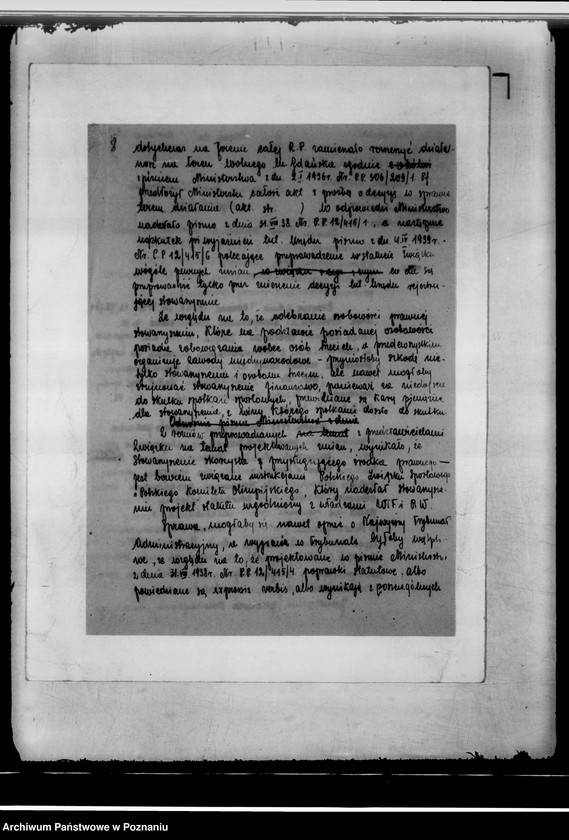 8
dotychczas na terenie całej R.P. zamierzało rozszerzyć działal-
ność na teren wolnego m. Gdańska zgodnie
z pismem Ministerstwa z dn. I 1936r. Nr. P.P. 306/209/1 37
przedłożył Ministerstwu akt z prośbą o decyzję w sprawie
teren. działania (akt. str. ) W odpowiedzi Ministerstwo
nadesłało pismo z dnia 31.VIII 38 Nr. P.P. 12/415/1, a następnie
pismo z dn. 4.IV 1939r.
Nr. P.P. 12/415/6 polecające przeprowadzenie w statucie Związku
wogóle pewnych zmian, w ile są
przeprowadzić tylko przez zmienienie decyzji b. Urzędu rejestru-
jącej stowarzyszenie
Ze względu na to, że odebranie osobowości prawnej
stowarzyszeniu, które na podstawie posiadanej osobowości
posiada zobowiązania wobec osób trzecich, a przedewszystkim
organizuje zawody międzynarodowe - przyniosłoby szkodę nie-
tylko stowarzyszeniu i osobom trzecim, ale nawet mogłoby
zrujnować stowarzyszenie finansowo, ponieważ za niedojście
do skutku spotkań sportowych, przewidziane są kary pieniężne
dla stowarzyszenia, z winy którego spotkanie doszło do skutku.
Odnośnie pisma Ministerstwa z dnia
Z rozmów przeprowadzanych z przedstawicielami
Związku na temat projektowanych zmian, wynikało, że
stowarzyszenie skorzysta z przysługującego środka prawnego -
jest bowiem związane instrukcjami Polskiego Związku Sportowego
i Polskiego Komitetu Olimpijskiego, który nadesłał stowarzysze-
niu projekt statutu uzgodniony z władzami W.F. i P.W.
Sprawa, mogłaby się nawet oprzeć o Najwyższy Trybunał
Administracyjny, w Trybunale byłoby wątpli-
we, ze względu na to, że projektowane w piśmie Ministerstw.
z dnia 31.VIII 1938r. Nr. P.P. 12/415/4 poprawki statutowe, albo
powiedziane są expressis verbis, albo wynikają z poszczególnych
Archiwum Państwowe w Poznaniu